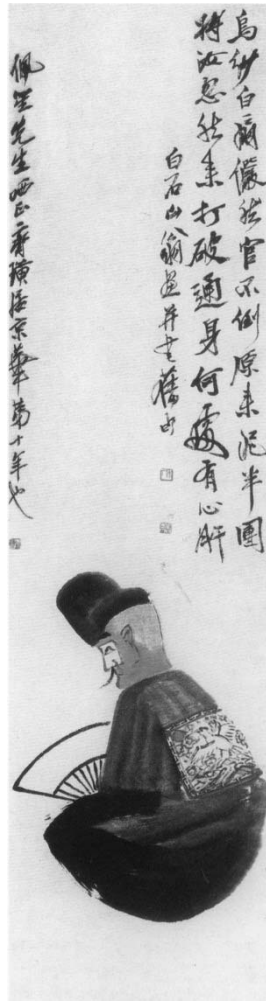 烏紗白扇儼然官不倒原來泥半團
將汝忽然來打破通身何處有心肝
白石山翁并書舊句
佩先生哂正齊璜居京華第十年也